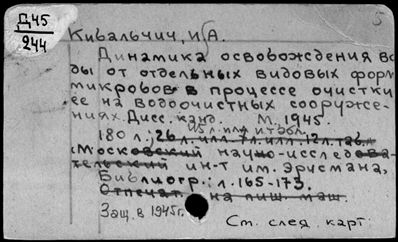 Д45
244
5
Кибальчич, И.А.
Динамика освобождения во
ды от отдельных видовых форм
микробов в процессе очистки
ее на водоочистных сооруже-
ниях. Дисс. канд. М. 1945.
180 л.; 26 л. илл. 7 л. илл. 12 л. табл.
(Московский научно-исследова-
тельский ин-т им. Эрисмана,
Библиогр.: л. 165-173.
Отпечат. на пиш. маш.
Защ. в 1945г.
См. след. карт.